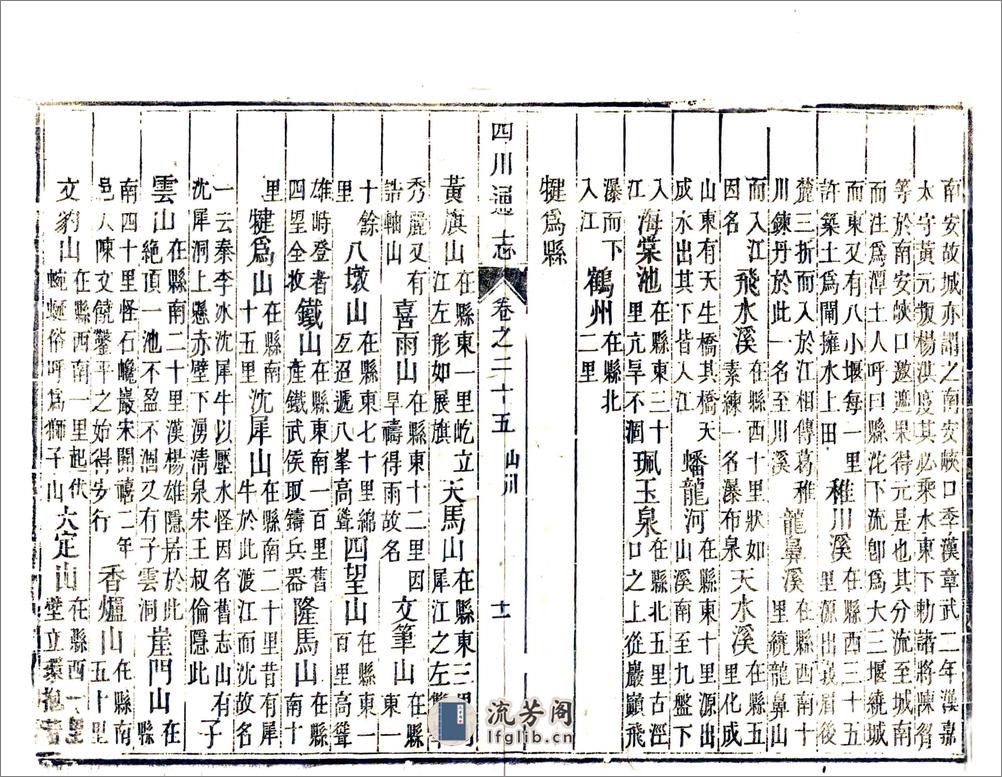 南安故城亦謂之南安峽口季漢章武二年漢嘉
太守黃元叛楊洪度其必乘水東下勅諸將陳曶
等於南安峽口邀遮果得元是也其分流至城南
而注爲潭土人呼曰縣沱下流卽爲大三堰繞城
而東又有八小堰每一里許築土爲閘擁水上田 稚川溪 在縣西三十五里源出峩眉後
麓三折而入於江相傳葛稚川鍊丹於此一名至川溪 龍鼻溪 在縣西南十里繞龍鼻山
而入江因名 飛水溪 在縣西十里狀如素練一名瀑布泉 天水溪 在縣五里化成
山東有天生橋其橋天成水出其下皆入江 蟠龍河 在縣東十里源出山下溪南至九盤下
入江 海棠池 在縣東三十里亢旱不涸 珮玉泉 在縣北五里古涇口之上從巖顚飛
瀑而下入江 鶴州 在縣北二里
犍爲縣
四川通志 卷之二十五 山川 十一
黃旗山 在縣東一里屹立江左形如展旗 天馬山 在縣東三里犀江之左
秀麗又有誥軸山 喜雨山 在縣東十二里因旱禱得雨故名 文筆山 在縣東一
十餘里 八墩山 在縣東七十里綿亙迢遞八峯高聳 四望山 在縣東一百里高聳
雄時登者四望全收 鐵山 在縣東南一百里舊產鐵武侯取鑄兵器 隆馬山 在縣南十
里 犍爲山 在縣南十五里 沈犀山 在縣南二十里昔有犀牛於此渡江而沈故名
一云秦李冰沈犀牛以壓水怪因名舊志山有子
沈犀洞上懸赤壁下湧清泉宋王叔倫隱此
雲山 在縣南二十里漢楊雄隱居於此絶頂一池不盈不涸又有子雲洞 崖門山 在縣
南四十里怪石巉巖宋開禧二年邑人陳文饒鑿平之始得安行 香爐山 在縣南五十里
文豹山 在縣西南一里起伏蜿蜒俗呼爲獅子山 六定山 在縣西一里壁立環抱
流芳阁
lfglib.cn